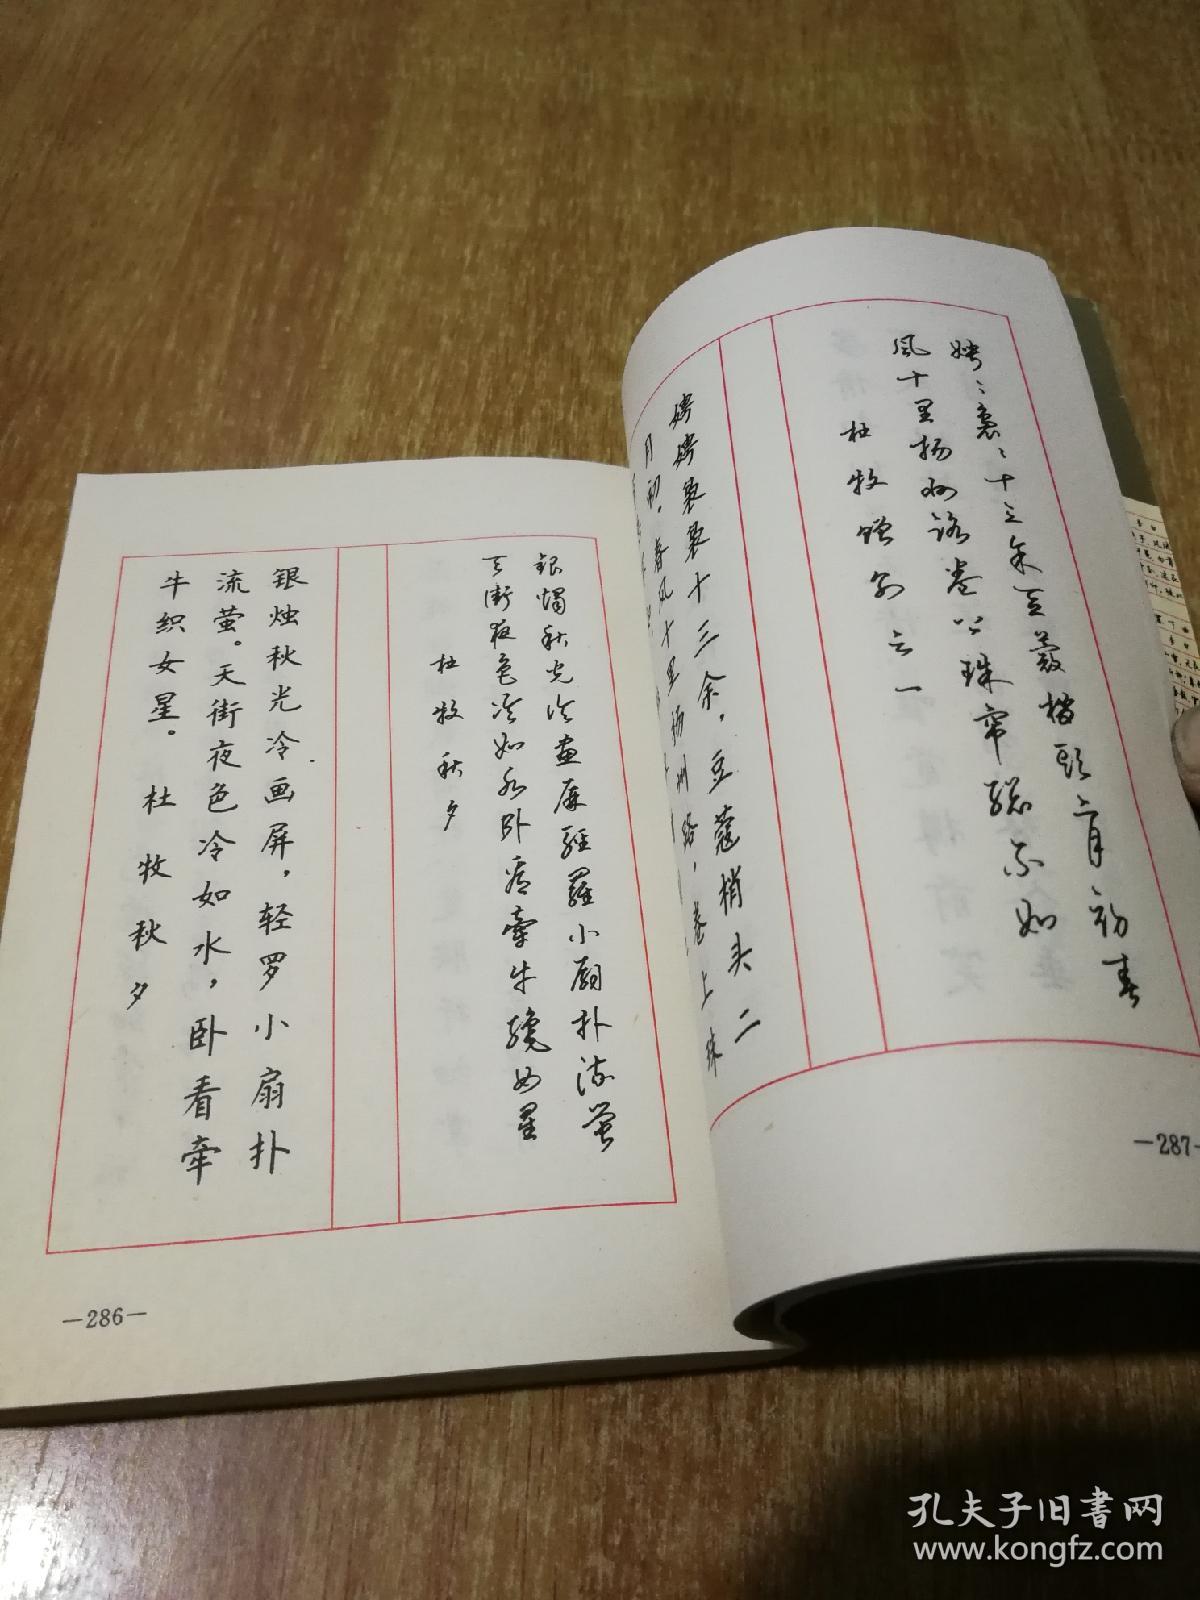 娉〻裊〻十三年豆蔻梢頭二月初春
風十里揚州路卷上珠帘總不如
杜牧贈別之一
娉娉袅袅十三余，豆蔻梢头二
月初。春风十里扬州路，卷上珠
—287—
銀燭秋光冷畫屏輕羅小扇扑流螢
天街夜色涼如水卧看牽牛織女星
杜牧秋夕
银烛秋光冷画屏，轻罗小扇扑
流萤。天街夜色冷如水，卧看牵
牛织女星。杜牧秋夕
—286—
孔夫子旧书网
www.kongfz.com